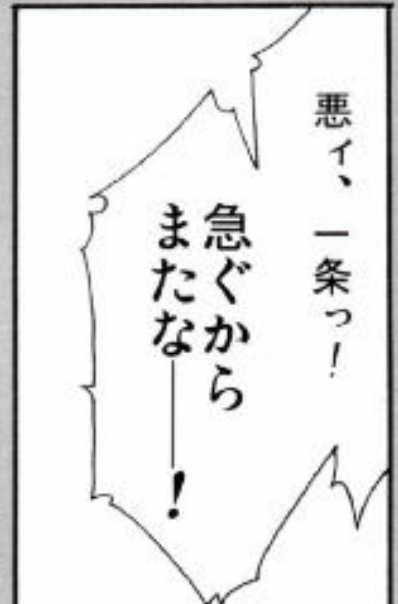 悪ィ、一条っ！
急ぐから
またな――！